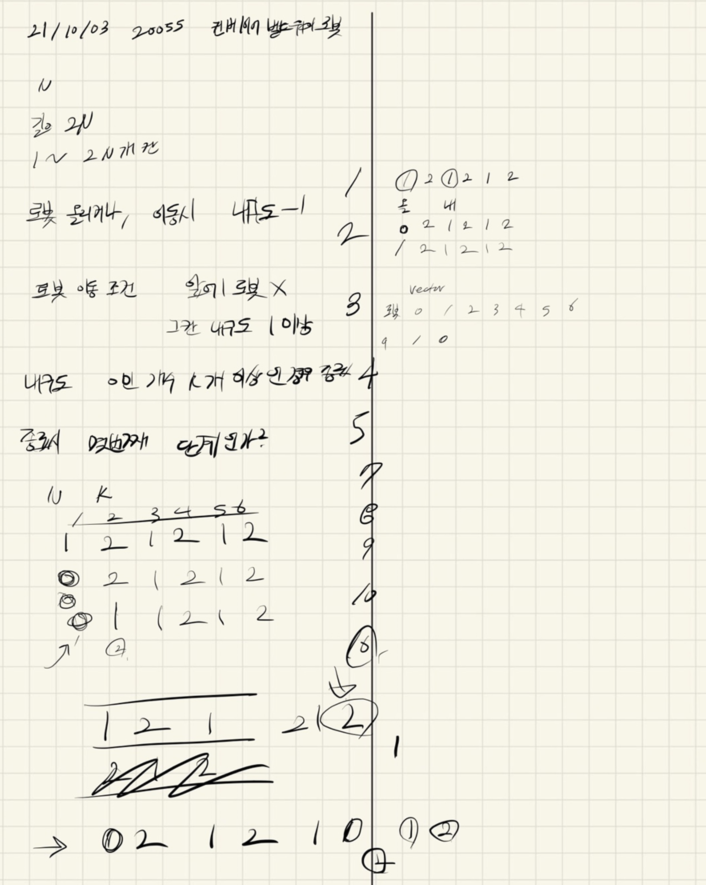 21/10/03 20055 컨베이어 벨트 위의 로봇
N
길이 2N
1 ~ 2N개 칸
로봇 올리거나, 이동시 내구도 -1
로봇 이동 조건 앞에 로봇 X
그칸 내구도 1 이상
내구도 0인 개수 K개 이상인 경우 종료
종료시 몇번째 단계인가?
N K
1 2 3 4 5 6
1 2 1 2 1 2
0 2 1 2 1 2
0
0 1 1 2 1 2
1 2 1 2 1 2
→ 0 2 1 2 1 0 1 2
1
1 2 1 2 1 2
올 내
2
0 2 1 2 1 2
1 2 1 2 1 2
3
vector
로봇 0 1 2 3 4 5 6
9 1 0
4
5
7
8
9
10
1